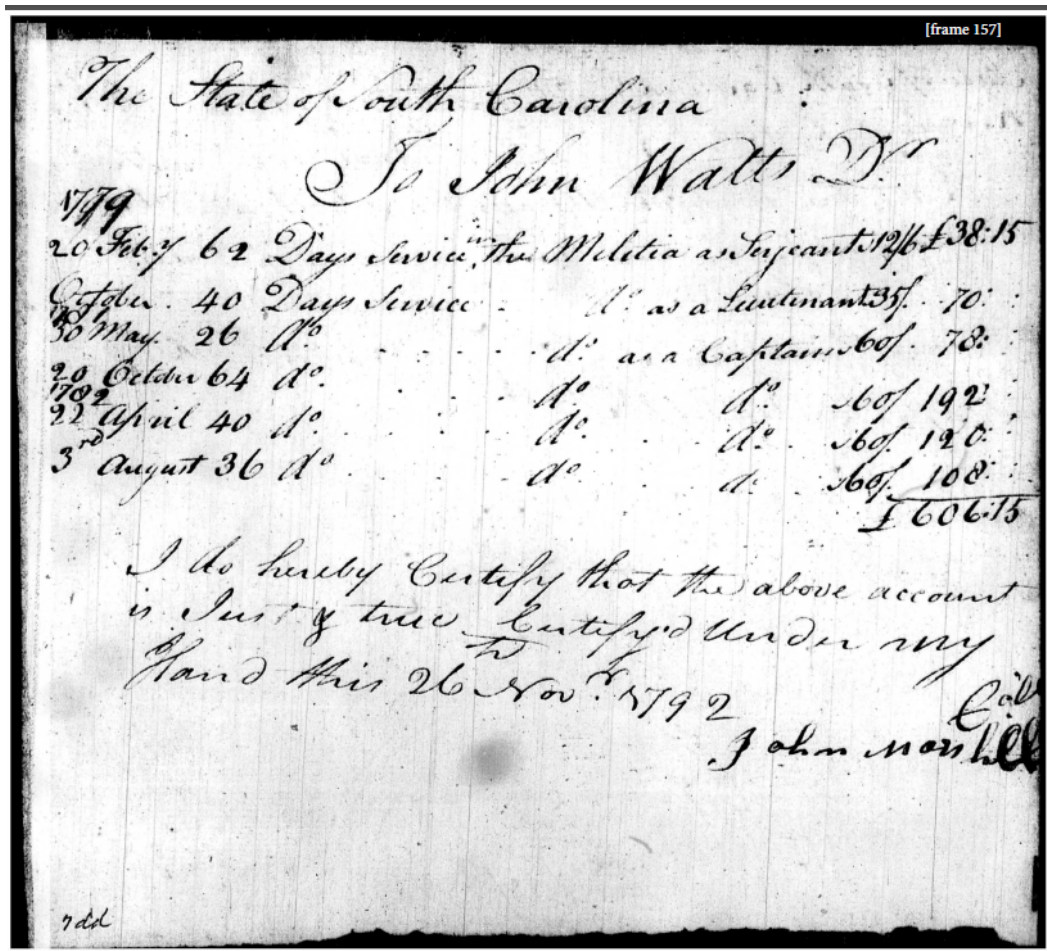 [frame 157]
The State of South Carolina
To John Watts Dr
1779
20 Feby 62 Days Service in the Militia as Serjeant 12/6 £38:15
October 40 Days Service do as a Lieutenant 35/ 70:
30 May 26 do do as a Captain 60/ 78:
20 October 64 do do do 60/ 192:
1782
22 April 40 do do do 60/ 120:
3rd August 36 do do do 60/ 108:
£606:15
I do hereby Certify that the above account
is Just & true Certify'd Under my
Hand this 26th Novr 1792
John Marshell